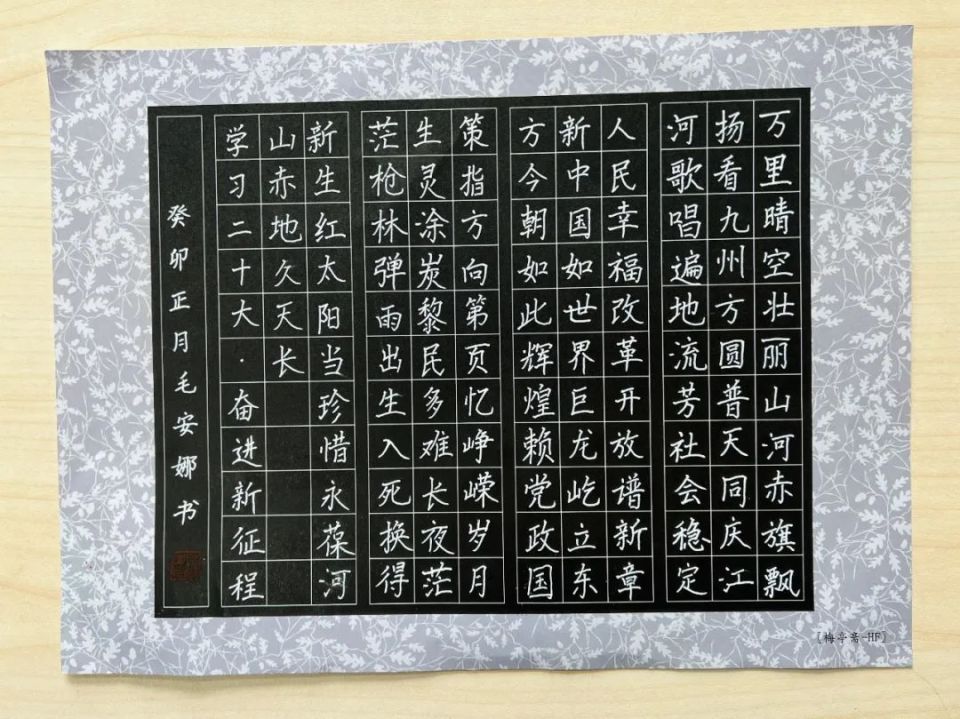 万里晴空壮丽山河赤旗飘
扬看九州方圆普天同庆江
河歌唱遍地流芳社会稳定
人民幸福改革开放谱新章
新中国如世界巨龙屹立东
方今朝如此辉煌赖党政国
策指方向第页忆峥嵘岁月
生灵涂炭黎民多难长夜茫
茫枪林弹雨出生入死换得
新生红太阳当珍惜永葆河
山赤地久天长
学习二十大·奋进新征程
癸卯正月毛安娜书
[梅亭斋-HF]